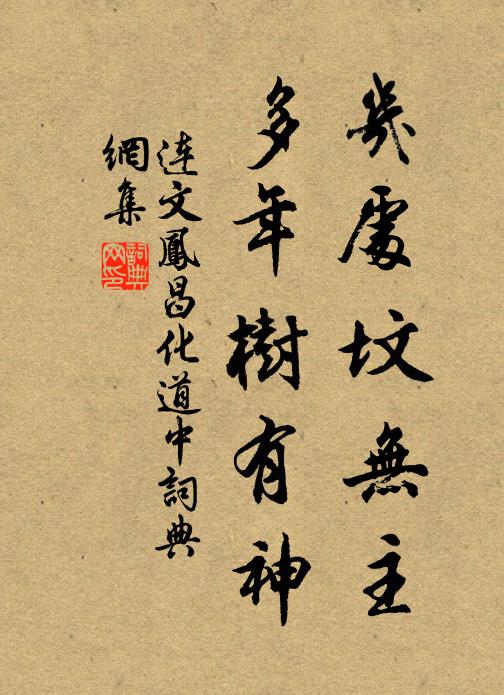 幾處墳無主
多年樹有神
連文鳳昌化道中詞典
網集
詞典
網印